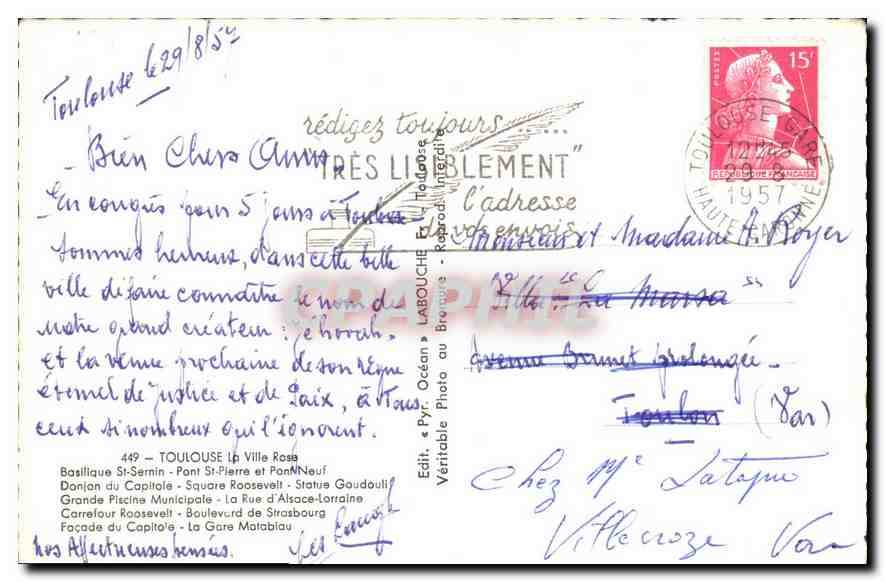 Toulouse le 29/8/57
Bien Chers Amis
En congrès pour 5 jours à Toulouse
sommes heureux, dans cette belle
ville de faire connaître le nom de
notre grand créateur : Jéhovah
et la venue prochaine de son règne
éternel de justice et de Paix, à tous
ceux si nombreux qui l'ignorent.
449 — TOULOUSE La Ville Rose
Basilique St-Sernin - Pont St-Pierre et Pont Neuf
Donjon du Capitole - Square Roosevelt - Statue Goudouli
Grande Piscine Municipale - La Rue d'Alsace-Lorraine
Carrefour Roosevelt - Boulevard de Strasbourg
Façade du Capitole - La Gare Matabiau
nos Affectueuses pensées.
Les
Edit. « Pyr. Océan » LABOUCHE Fres Toulouse
Véritable Photo au Bromure - Reprod. Interdite
rédigez toujours ......
"TRÈS LISIBLEMENT"
l'adresse
de vos envois
POSTES
15F
REPUBLIQUE FRANÇAISE
TOULOUSE GARE
12H
29-8
1957
HAUTE GARONNE
Monsieur et Madame A. Royer
Villa "La Marsa"
Avenue Brunet prolongée
Toulon (Var)
Chez Me Latapie
Villecroze Var
CPAPHIL